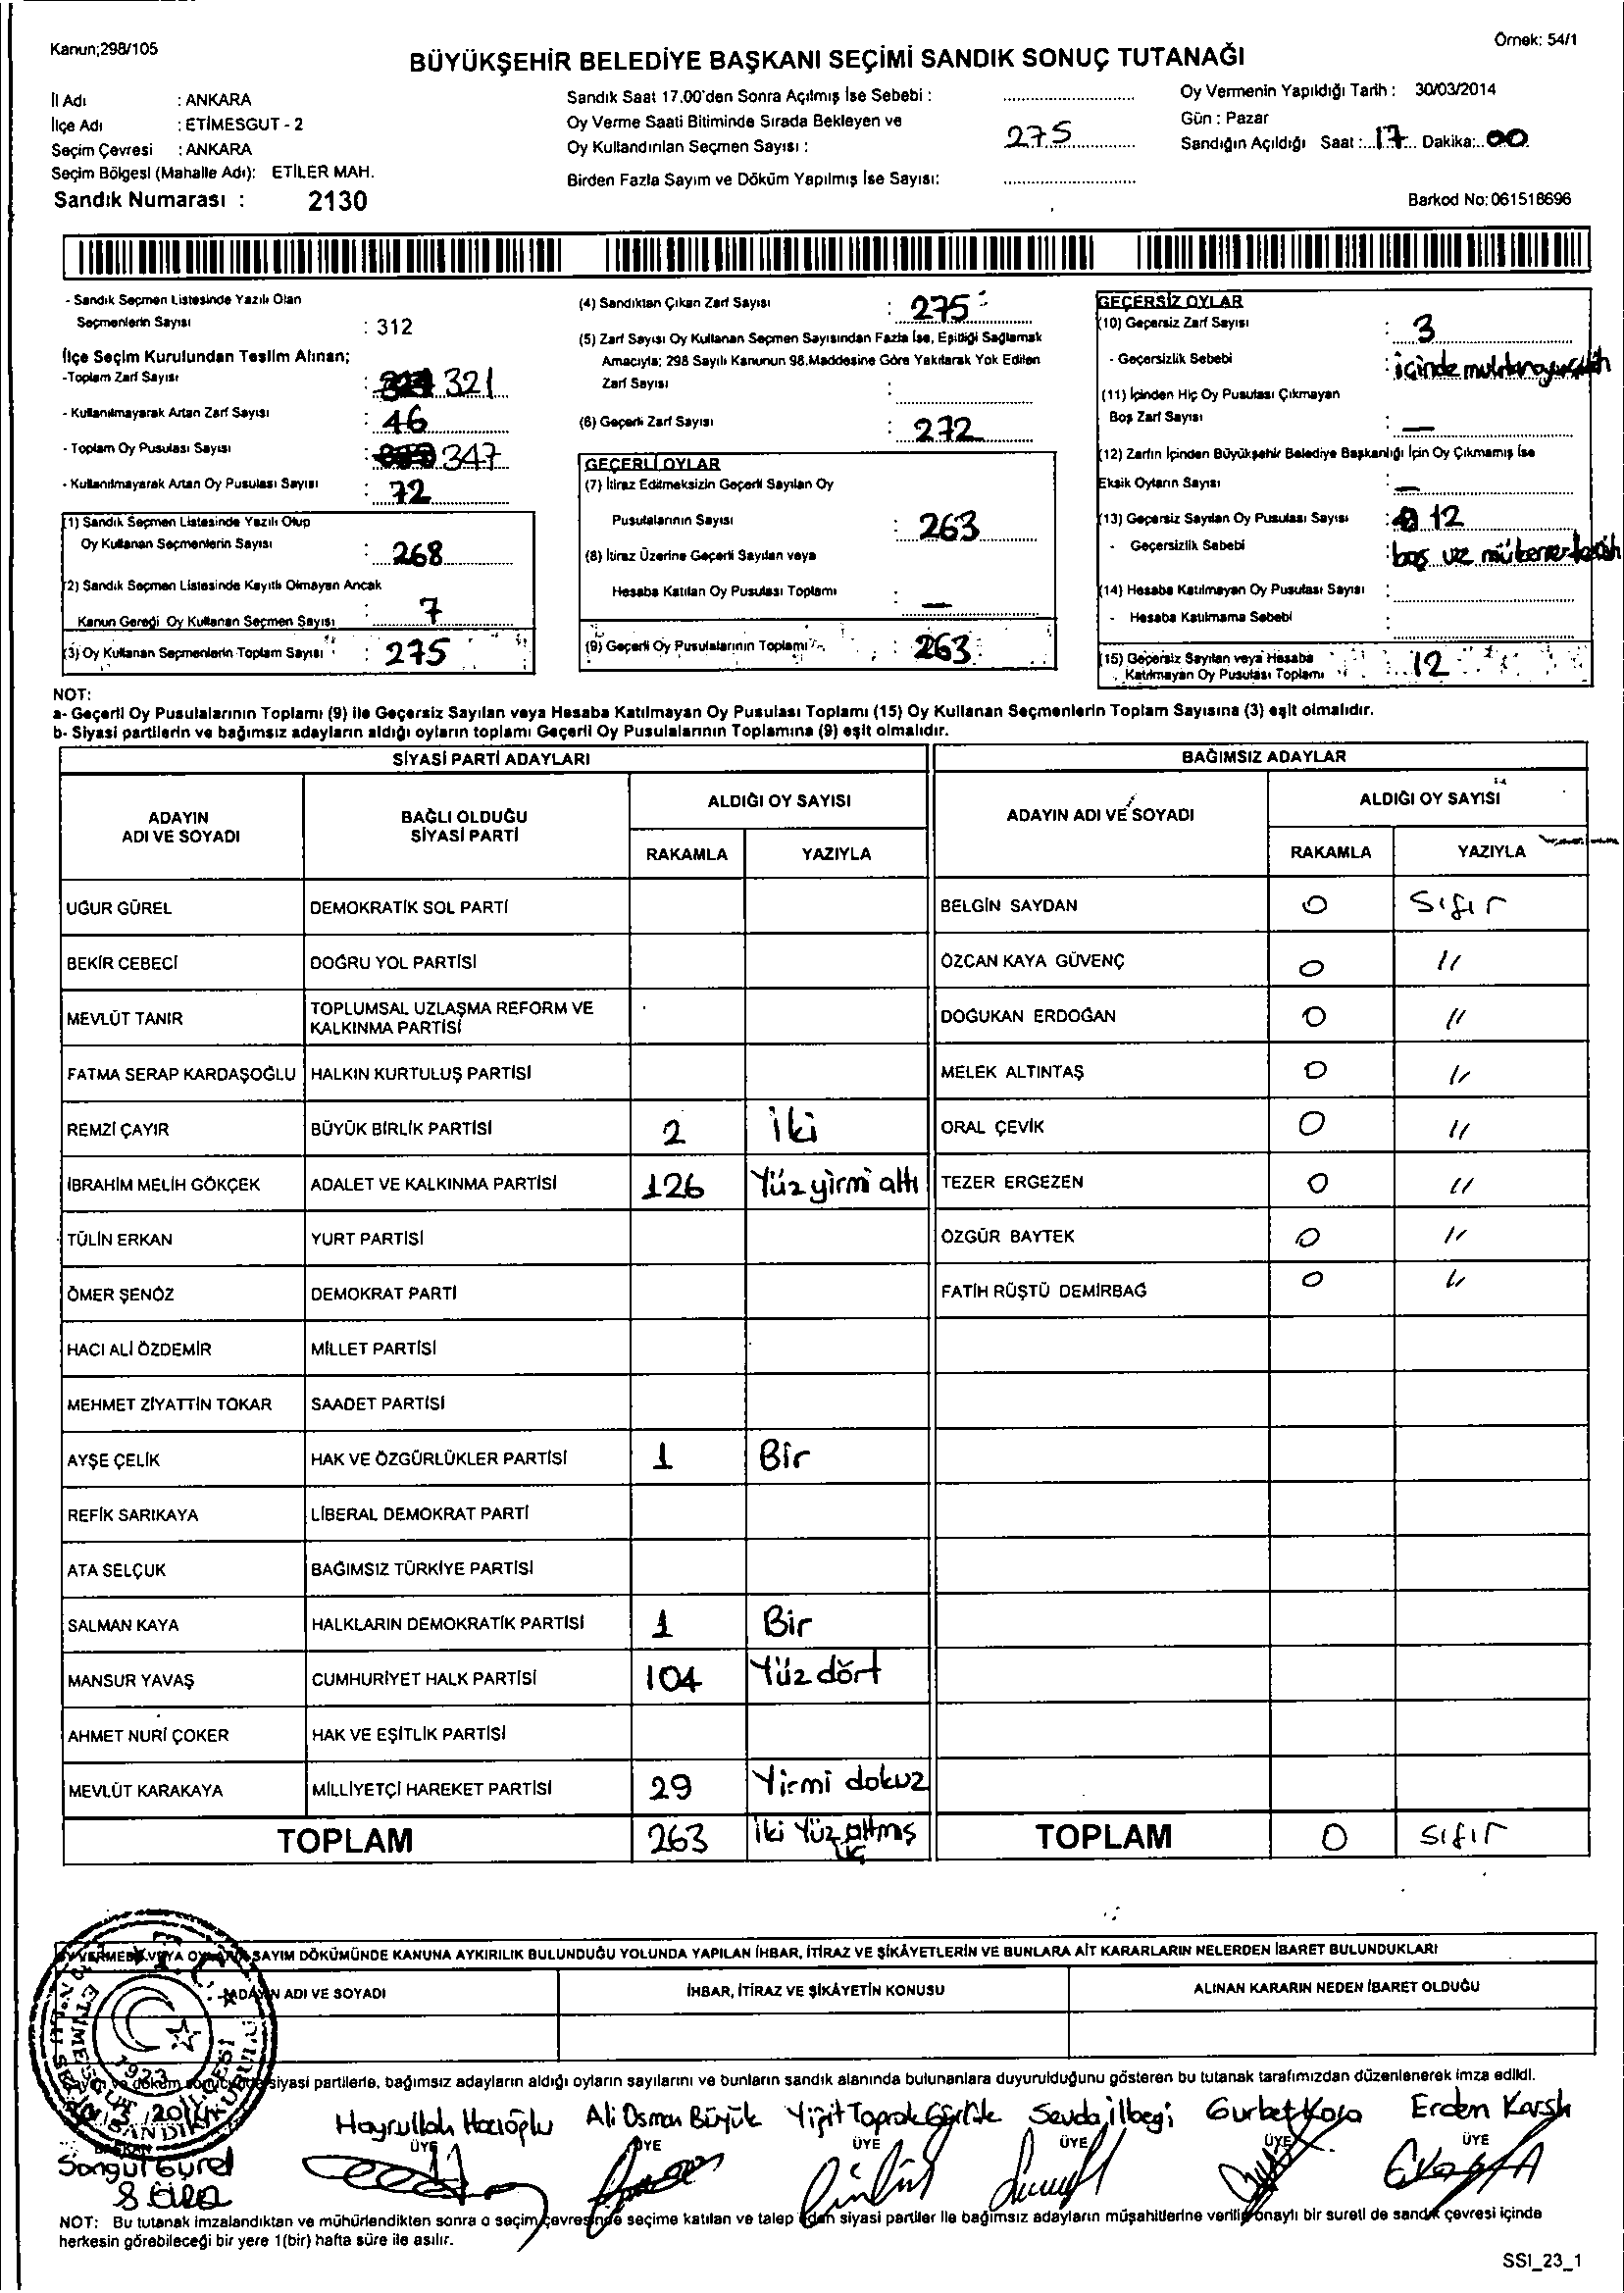 Kanun;298/105
Örnek: 54/1
BÜYÜKŞEHİR BELEDİYE BAŞKANI SEÇİMİ SANDIK SONUÇ TUTANAĞI
İl Adı : ANKARA
İlçe Adı : ETİMESGUT - 2
Seçim Çevresi : ANKARA
Seçim Bölgesi (Mahalle Adı): ETİLER MAH.
Sandık Numarası : 2130
Sandık Saat 17.00'den Sonra Açılmış İse Sebebi :
Oy Verme Saati Bitiminde Sırada Bekleyen ve
Oy Kullandırılan Seçmen Sayısı : 275
Birden Fazla Sayım ve Döküm Yapılmış İse Sayısı:
Oy Vermenin Yapıldığı Tarih : 30/03/2014
Gün : Pazar
Sandığın Açıldığı Saat : 17 Dakika: 00
Barkod No: 061518696
- Sandık Seçmen Listesinde Yazılı Olan
Seçmenlerin Sayısı : 312
İlçe Seçim Kurulundan Teslim Alınan;
-Toplam Zarf Sayısı : 321
- Kullanılmayarak Artan Zarf Sayısı : 46
- Toplam Oy Pusulası Sayısı : 347
- Kullanılmayarak Artan Oy Pusulası Sayısı : 72
(1) Sandık Seçmen Listesinde Yazılı Olup
Oy Kullanan Seçmenlerin Sayısı : 268
(2) Sandık Seçmen Listesinde Kayıtlı Olmayan Ancak
Kanun Gereği Oy Kullanan Seçmen Sayısı : 7
(3) Oy Kullanan Seçmenlerin Toplam Sayısı : 275
(4) Sandıktan Çıkan Zarf Sayısı : 275
(5) Zarf Sayısı Oy Kullanan Seçmen Sayısından Fazla İse, Eşitliği Sağlamak
Amacıyla; 298 Sayılı Kanunun 98.Maddesine Göre Yakılarak Yok Edilen
Zarf Sayısı :
(6) Geçerli Zarf Sayısı : 272
GEÇERLİ OYLAR
(7) İtiraz Edilmeksizin Geçerli Sayılan Oy
Pusulalarının Sayısı : 263
(8) İtiraz Üzerine Geçerli Sayılan veya
Hesaba Katılan Oy Pusulası Toplamı : —
(9) Geçerli Oy Pusulalarının Toplamı : 263
GEÇERSİZ OYLAR
(10) Geçersiz Zarf Sayısı : 3
- Geçersizlik Sebebi : içinde
(11) İçinden Hiç Oy Pusulası Çıkmayan
Boş Zarf Sayısı : —
(12) Zarfın İçinden Büyükşehir Belediye Başkanlığı İçin Oy Çıkmamış İse
Eksik Oyların Sayısı : —
(13) Geçersiz Sayılan Oy Pusulası Sayısı : 12
- Geçersizlik Sebebi : boş ve
(14) Hesaba Katılmayan Oy Pusulası Sayısı :
- Hesaba Katılmama Sebebi :
(15) Geçersiz Sayılan veya Hesaba
Katılmayan Oy Pusulası Toplamı : 12
NOT:
a- Geçerli Oy Pusulalarının Toplamı (9) ile Geçersiz Sayılan veya Hesaba Katılmayan Oy Pusulası Toplamı (15) Oy Kullanan Seçmenlerin Toplam Sayısına (3) eşit olmalıdır.
b- Siyasi partilerin ve bağımsız adayların aldığı oyların toplamı Geçerli Oy Pusulalarının Toplamına (9) eşit olmalıdır.
SİYASİ PARTİ ADAYLARI
BAĞIMSIZ ADAYLAR
ADAYIN
ADI VE SOYADI
BAĞLI OLDUĞU
SİYASİ PARTİ
ALDIĞI OY SAYISI
RAKAMLA YAZIYLA
ADAYIN ADI VE SOYADI
ALDIĞI OY SAYISI
RAKAMLA YAZIYLA
UĞUR GÜREL DEMOKRATİK SOL PARTİ BELGİN SAYDAN 0 Sıfır
BEKİR CEBECİ DOĞRU YOL PARTİSİ ÖZCAN KAYA GÜVENÇ 0 "
MEVLÜT TANIR TOPLUMSAL UZLAŞMA REFORM VE
KALKINMA PARTİSİ DOĞUKAN ERDOĞAN 0 "
FATMA SERAP KARDAŞOĞLU HALKIN KURTULUŞ PARTİSİ MELEK ALTINTAŞ 0 "
REMZİ ÇAYIR BÜYÜK BİRLİK PARTİSİ 2 İki ORAL ÇEVİK 0 "
İBRAHİM MELİH GÖKÇEK ADALET VE KALKINMA PARTİSİ 126 Yüz yirmi altı TEZER ERGEZEN 0 "
TÜLİN ERKAN YURT PARTİSİ ÖZGÜR BAYTEK 0 "
ÖMER ŞENÖZ DEMOKRAT PARTİ FATİH RÜŞTÜ DEMİRBAĞ 0 "
HACI ALİ ÖZDEMİR MİLLET PARTİSİ
MEHMET ZİYATTİN TOKAR SAADET PARTİSİ
AYŞE ÇELİK HAK VE ÖZGÜRLÜKLER PARTİSİ 1 Bir
REFİK SARIKAYA LİBERAL DEMOKRAT PARTİ
ATA SELÇUK BAĞIMSIZ TÜRKİYE PARTİSİ
SALMAN KAYA HALKLARIN DEMOKRATİK PARTİSİ 1 Bir
MANSUR YAVAŞ CUMHURİYET HALK PARTİSİ 104 Yüz dört
AHMET NURİ ÇOKER HAK VE EŞİTLİK PARTİSİ
MEVLÜT KARAKAYA MİLLİYETÇİ HAREKET PARTİSİ 29 Yirmi dokuz
TOPLAM 263 İki Yüz altmış üç TOPLAM 0 Sıfır
SAYIM DÖKÜMÜNDE KANUNA AYKIRILIK BULUNDUĞU YOLUNDA YAPILAN İHBAR, İTİRAZ VE ŞİKÂYETLERİN VE BUNLARA AİT KARARLARIN NELERDEN İBARET BULUNDUKLARI
ADAYIN ADI VE SOYADI İHBAR, İTİRAZ VE ŞİKÂYETİN KONUSU ALINAN KARARIN NEDEN İBARET OLDUĞU
siyasi partilerle, bağımsız adayların aldığı oyların sayılarını ve bunların sandık alanında bulunanlara duyurulduğunu gösteren bu tutanak tarafımızdan düzenlenerek imza edildi.
Hayrullah Hacıoğlu Ali Osman Büyük Yiğit Toprak Sevda İlbegi Gurbet Koca Erden Karslı
BAŞKAN ÜYE ÜYE ÜYE ÜYE ÜYE ÜYE
Songül Gürel
NOT: Bu tutanak imzalandıktan ve mühürlendikten sonra o seçim çevresinde seçime katılan ve talep eden siyasi partiler ile bağımsız adayların müşahitlerine verilir onaylı bir sureti de sandık çevresi içinde
herkesin görebileceği bir yere 1(bir) hafta süre ile asılır.
SSI_23_1